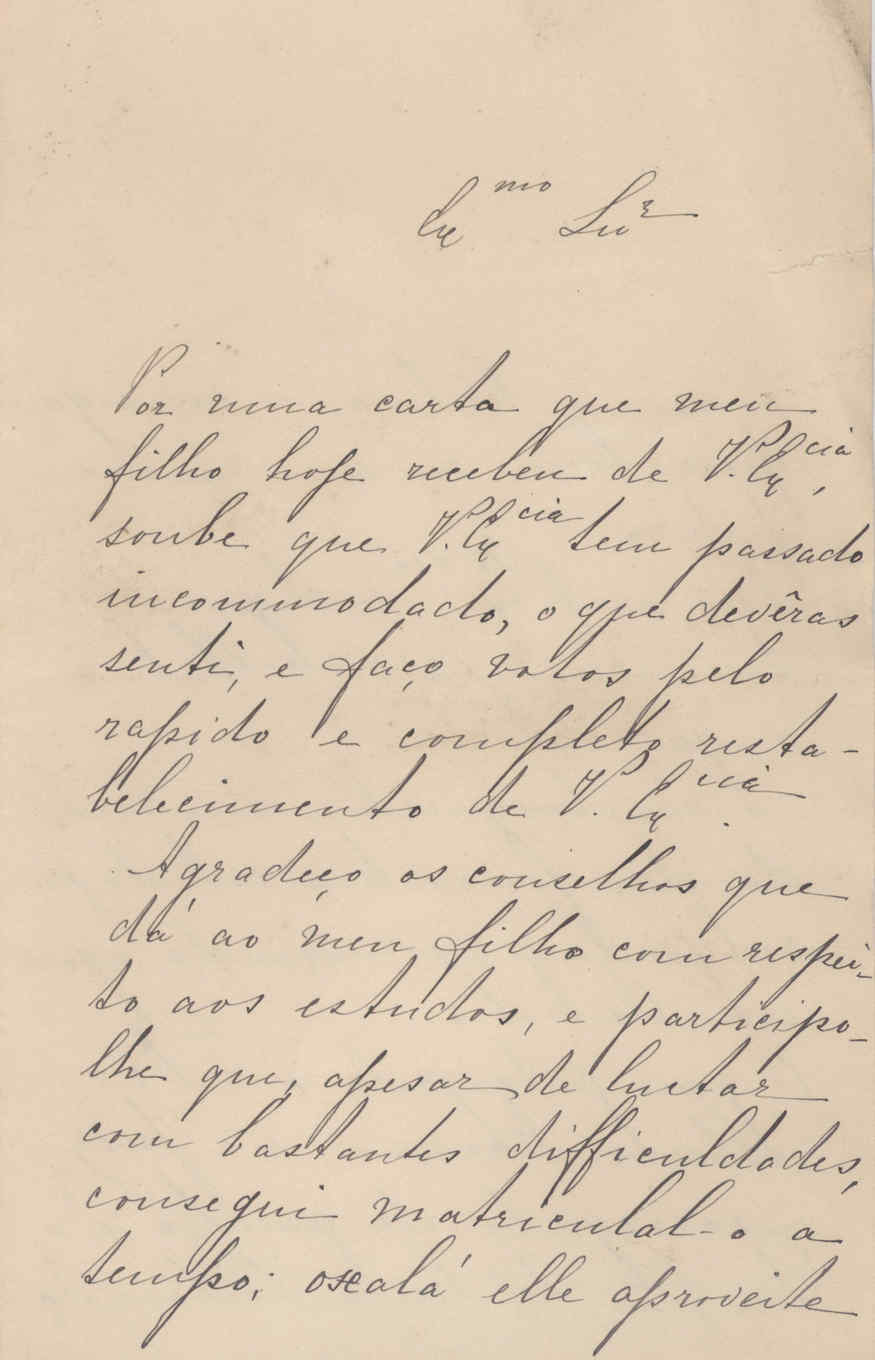 Ex^mo Snr
Por uma carta que meu
filho hoje recebeu de V. Ex^cia,
soube que V. Ex^cia tem passado
incommodado, o que devéras
senti, e faço votos pelo
rapido e completo resta-
belecimento de V. Ex^cia.
Agradeço os conselhos que
dá ao meu filho com respei-
to aos estudos, e participo-
lhe que, apesar de luctar
com bastantes difficuldades,
consegui matriculal-o a
tempo; oxalá elle aproveite